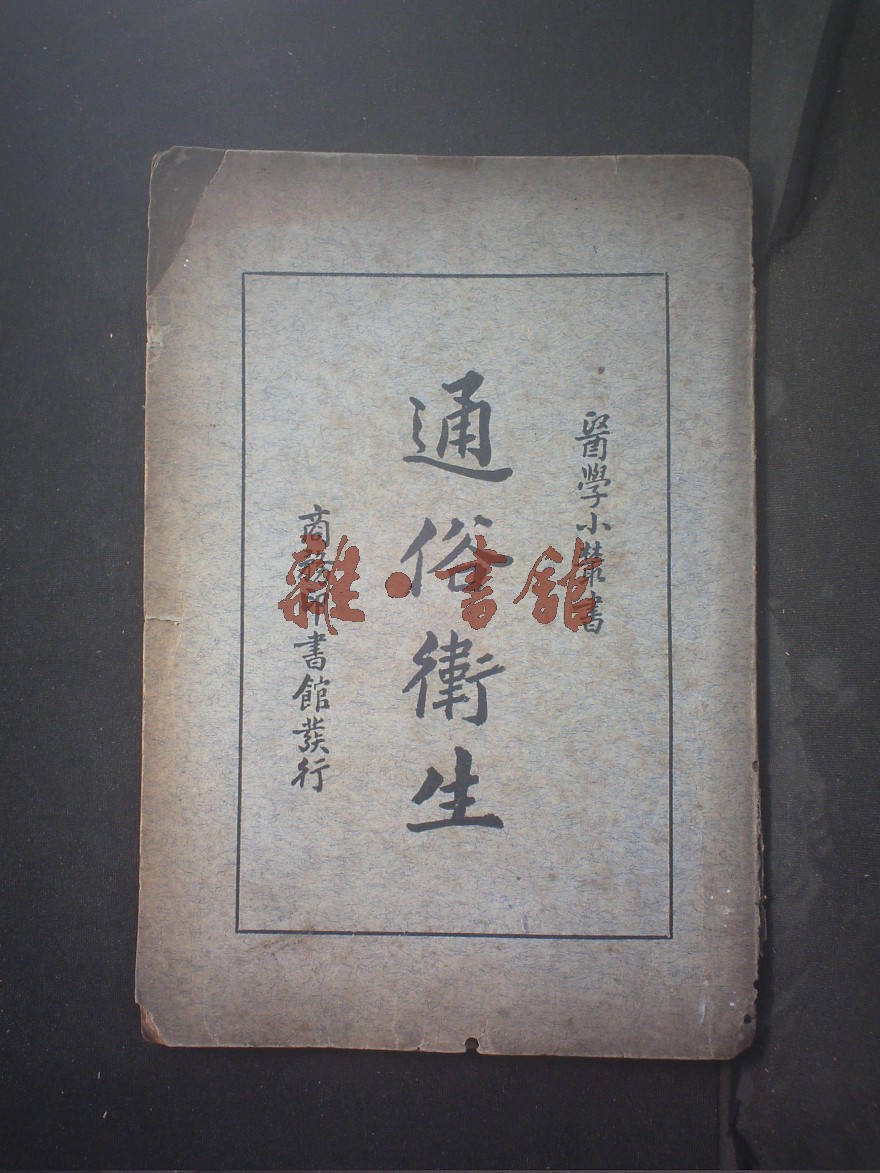 醫學小叢書
通俗衛生
商務印書館發行
雜·書館